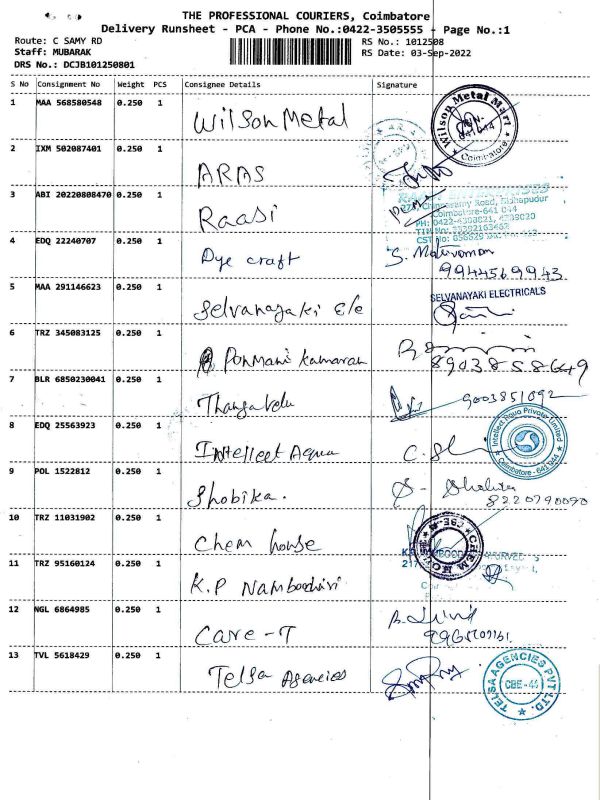 THE PROFESSIONAL COURIERS, Coimbatore
Delivery Runsheet - PCA - Phone No.:0422-3505555 - Page No.:1
Route: C SAMY RD RS No.: 1012508
Staff: MUBARAK RS Date: 03-Sep-2022
DRS No.: DCJB101250801
S No Consignment No Weight PCS Consignee Details Signature
1 MAA 568580548 0.250 1 Wilson Metal
Wilson Metal Mart
Coimbatore
2 IXM 502087401 0.250 1 ARAS
3 ABI 20220808470 0.250 1 Raasi
Coimbatore-641 044
4 EDQ 22240707 0.250 1 Dye craft
9944569943
5 MAA 291146623 0.250 1 Selvanayaki E/e
SELVANAYAKI ELECTRICALS
6 TRZ 345083125 0.250 1 Ponmani Kamaran
8903858649
7 BLR 6850230041 0.250 1 Thangavelu
9003851092
8 EDQ 25563923 0.250 1 Intelleet Aqua
Intellect Aqua Private Limited
Coimbatore - 641 044
9 POL 1522812 0.250 1 Shobika.
8220790090
10 TRZ 11031902 0.250 1 Chem house
CHEM HOUSE
11 TRZ 95160124 0.250 1 K.P Namboodiri
12 NGL 6864985 0.250 1 Care-T
13 TVL 5618429 0.250 1 Telsa Agencies
TELSA AGENCIES PVT LTD.